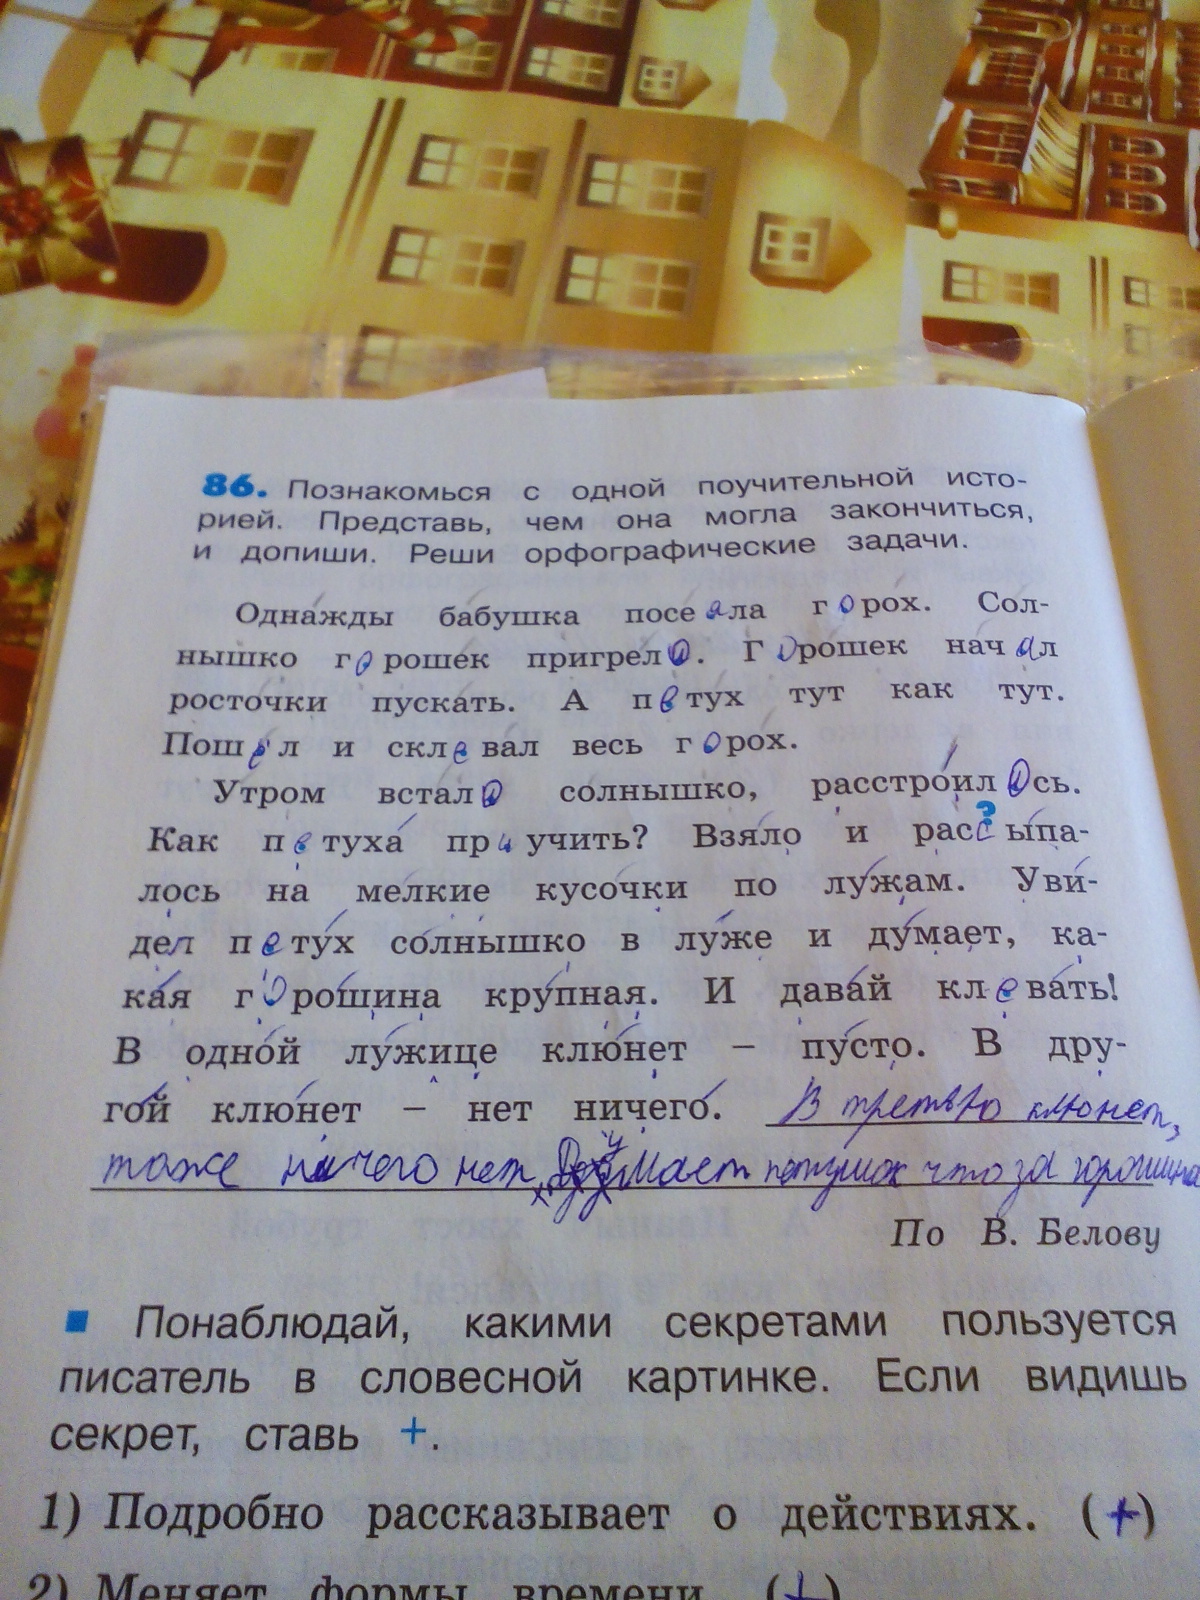 86. Познакомься с одной поучительной исто-
рией. Представь, чем она могла закончиться,
и допиши. Реши орфографические задачи.
Однажды бабушка посеала горох. Сол-
нышко горошек пригрело. Горошек начал
росточки пускать. А петух тут как тут.
Пошел и склевал весь горох.
Утром встало солнышко, расстроилось.
Как петуха приучить? Взяло и рассыпа-
лось на мелкие кусочки по лужам. Уви-
дел петух солнышко в луже и думает, ка-
кая горошина крупная. И давай клевать!
В одной лужице клюнет – пусто. В дру-
гой клюнет – нет ничего. В третью клюнет,
тоже ничего нет, Думает петушок что за горошина
По В. Белову
Понаблюдай, какими секретами пользуется
писатель в словесной картинке. Если видишь
секрет, ставь +.
1) Подробно рассказывает о действиях. (+)
2) Меняет формы времени. (+)